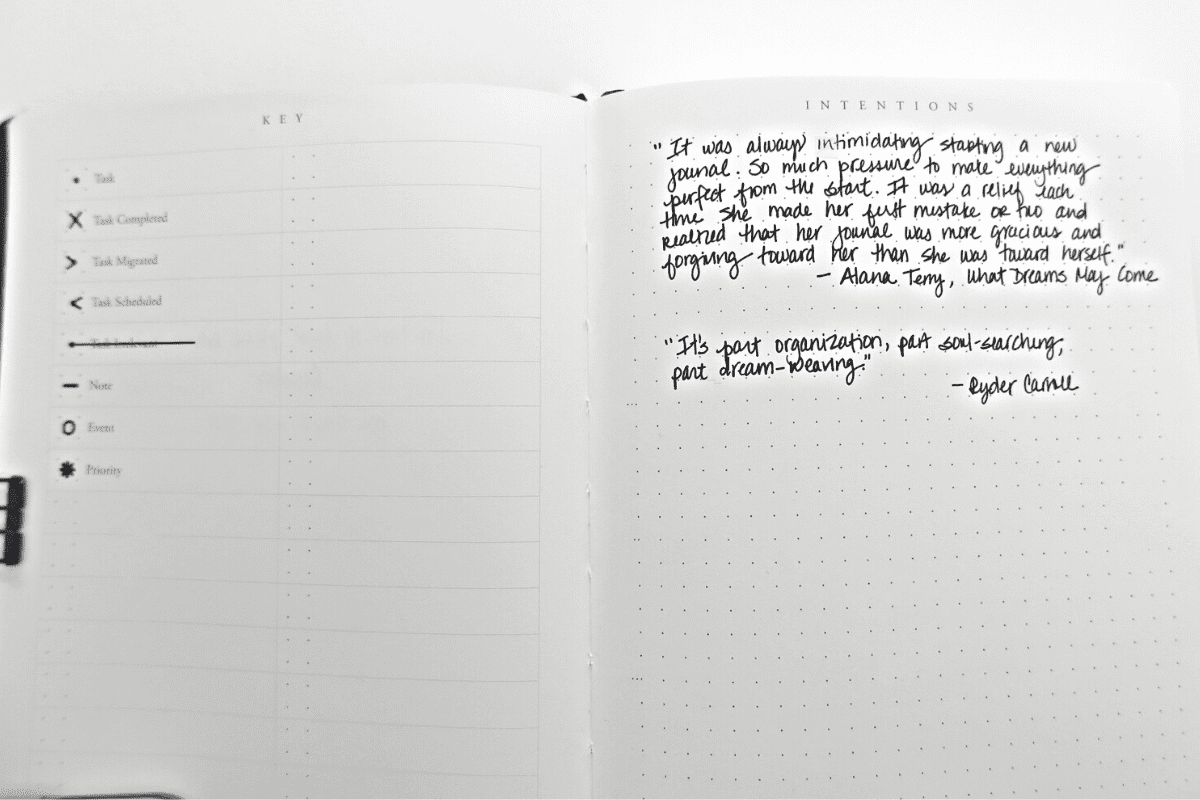 KEY
Task
Task Completed
Task Migrated
Task Scheduled
Task Irrelevant
Note
Event
Priority
INTENTIONS
"It was always intimidating starting a new
journal. So much pressure to make everything
perfect from the start. It was a relief each
time she made her first mistake or two and
realized that her journal was more gracious and
forgiving toward her than she was toward herself."
– Alana Terry, What Dreams May Come
"It's part organization, part soul-searching,
part dream-weaving."
– Ryder Carroll